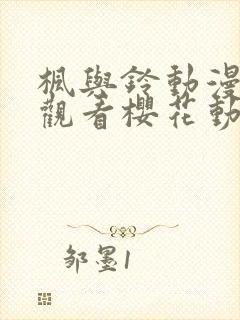 楓與鈴動漫
觀看櫻花動
邹墨1